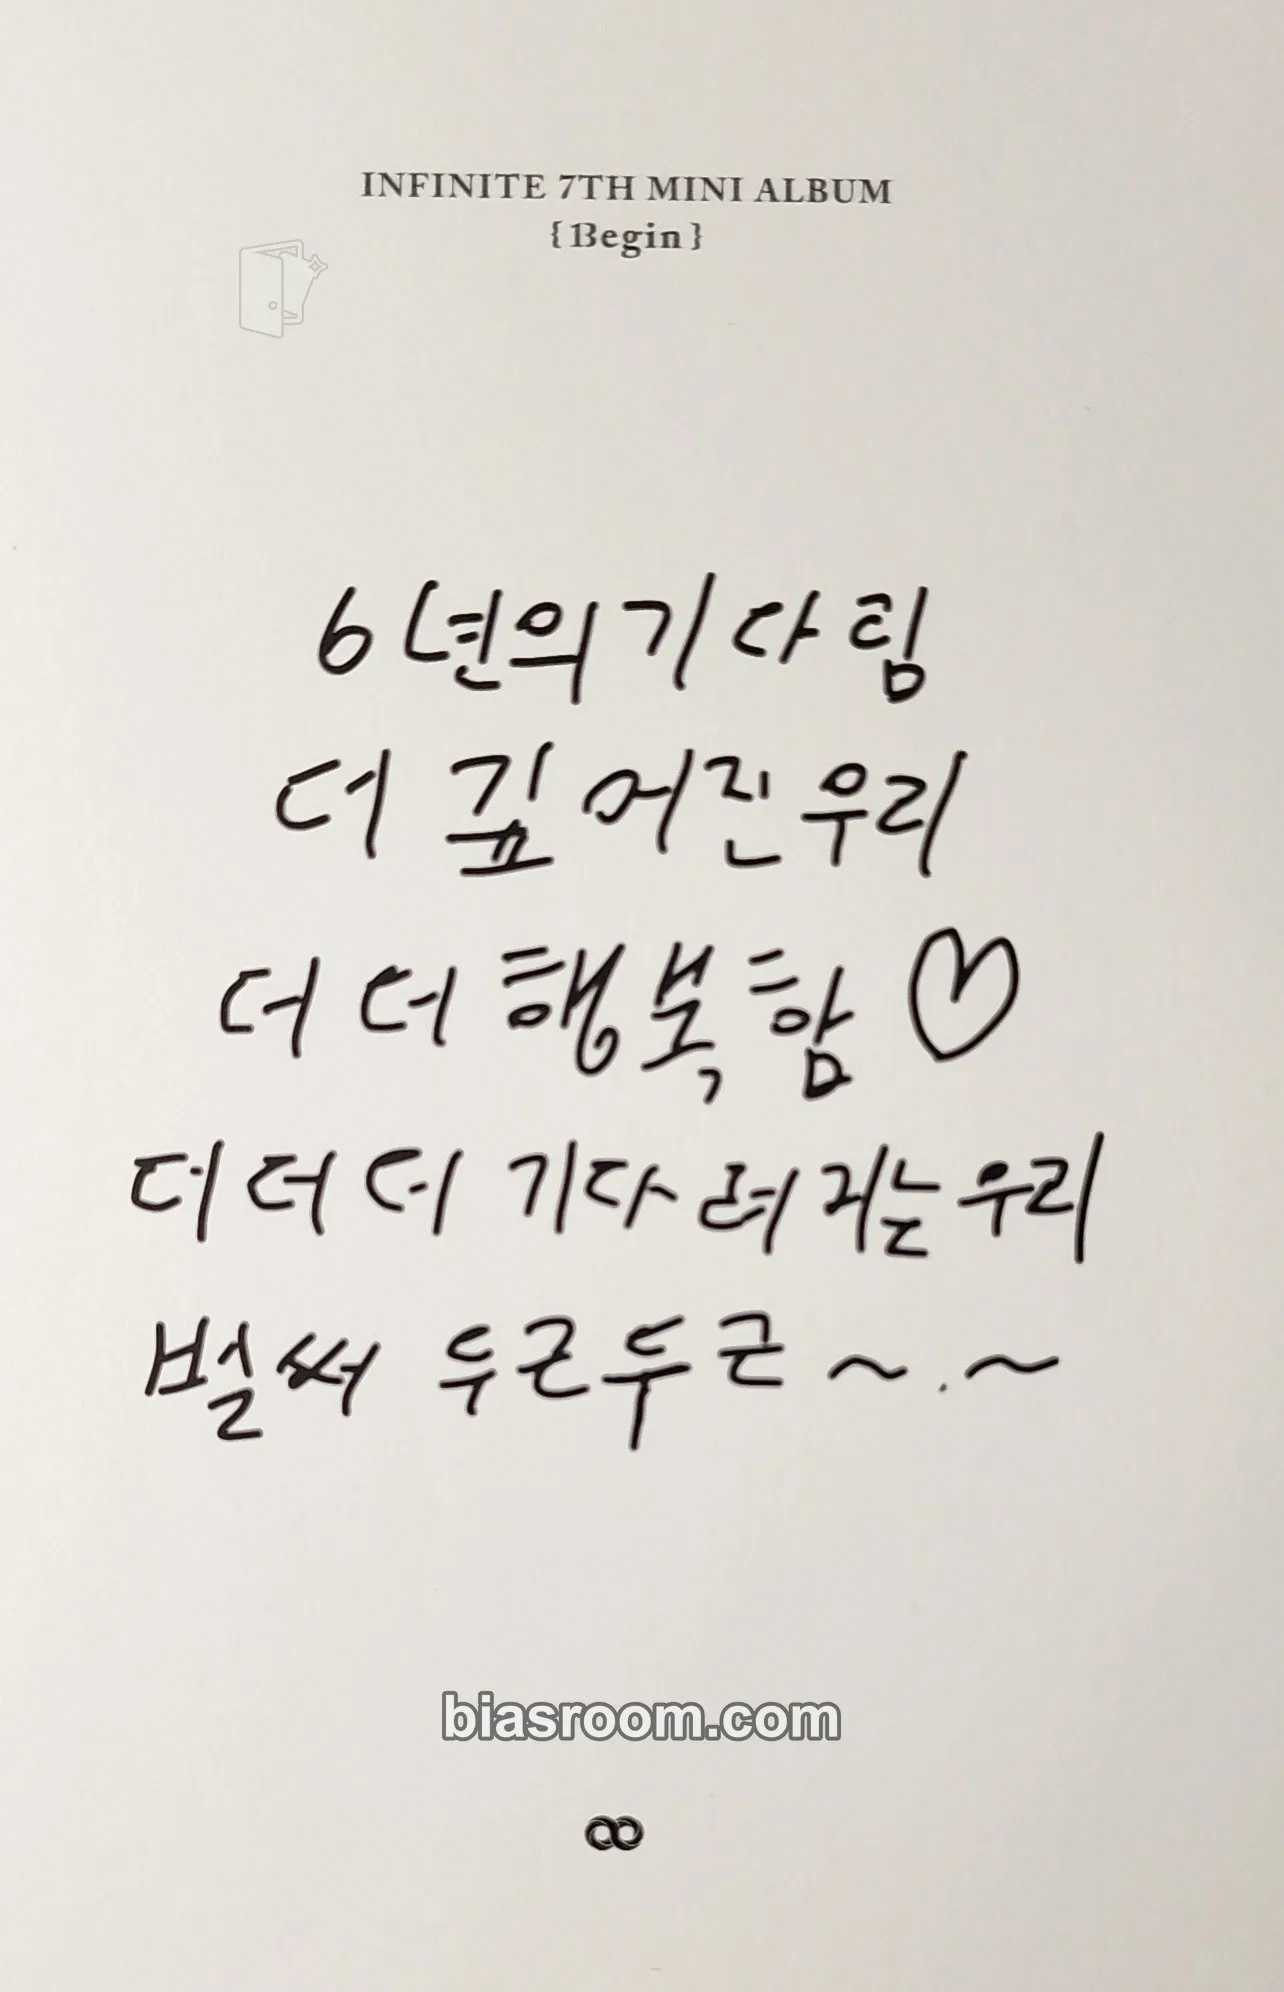 INFINITE 7TH MINI ALBUM
{Begin}
6년의 기다림
더 깊어진 우리
더 더 행복함♡
더 더 더 기다려지는 우리
벌써 두근두근~.~
biasroom.com